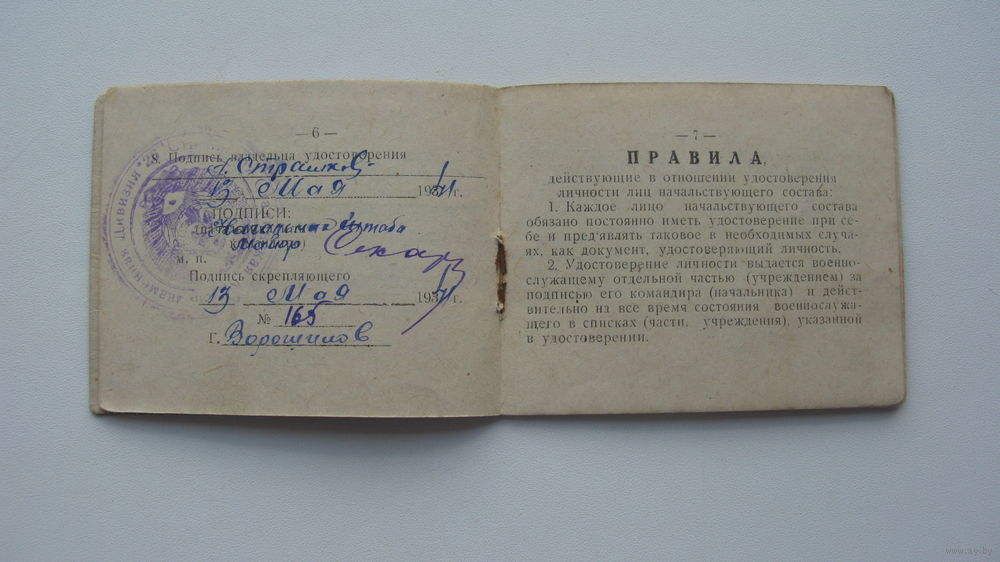 — 6 —
8. Подпись владельца удостоверения
Страшков
13 Мая 1941 г.
ПОДПИСИ:
Начальник Штаба
Майор
м. п.
Подпись скрепляющего
13 Мая 1941 г.
№ 165
Г. Ворошилов
Дивизия * 26
— 7 —
ПРАВИЛА,
действующие в отношении удостоверения
личности лиц начальствующего состава:
1. Каждое лицо начальствующего состава
обязано постоянно иметь удостоверение при се-
бе и предъявлять таковое в необходимых случа-
ях, как документ, удостоверяющий личность.
2. Удостоверение личности выдается военно-
служащему отдельной частью (учреждением) за
подписью его командира (начальника) и дейст-
вительно на все время состояния военнослужа-
щего в списках (части, учреждения), указанной
в удостоверении.
www.ay.by